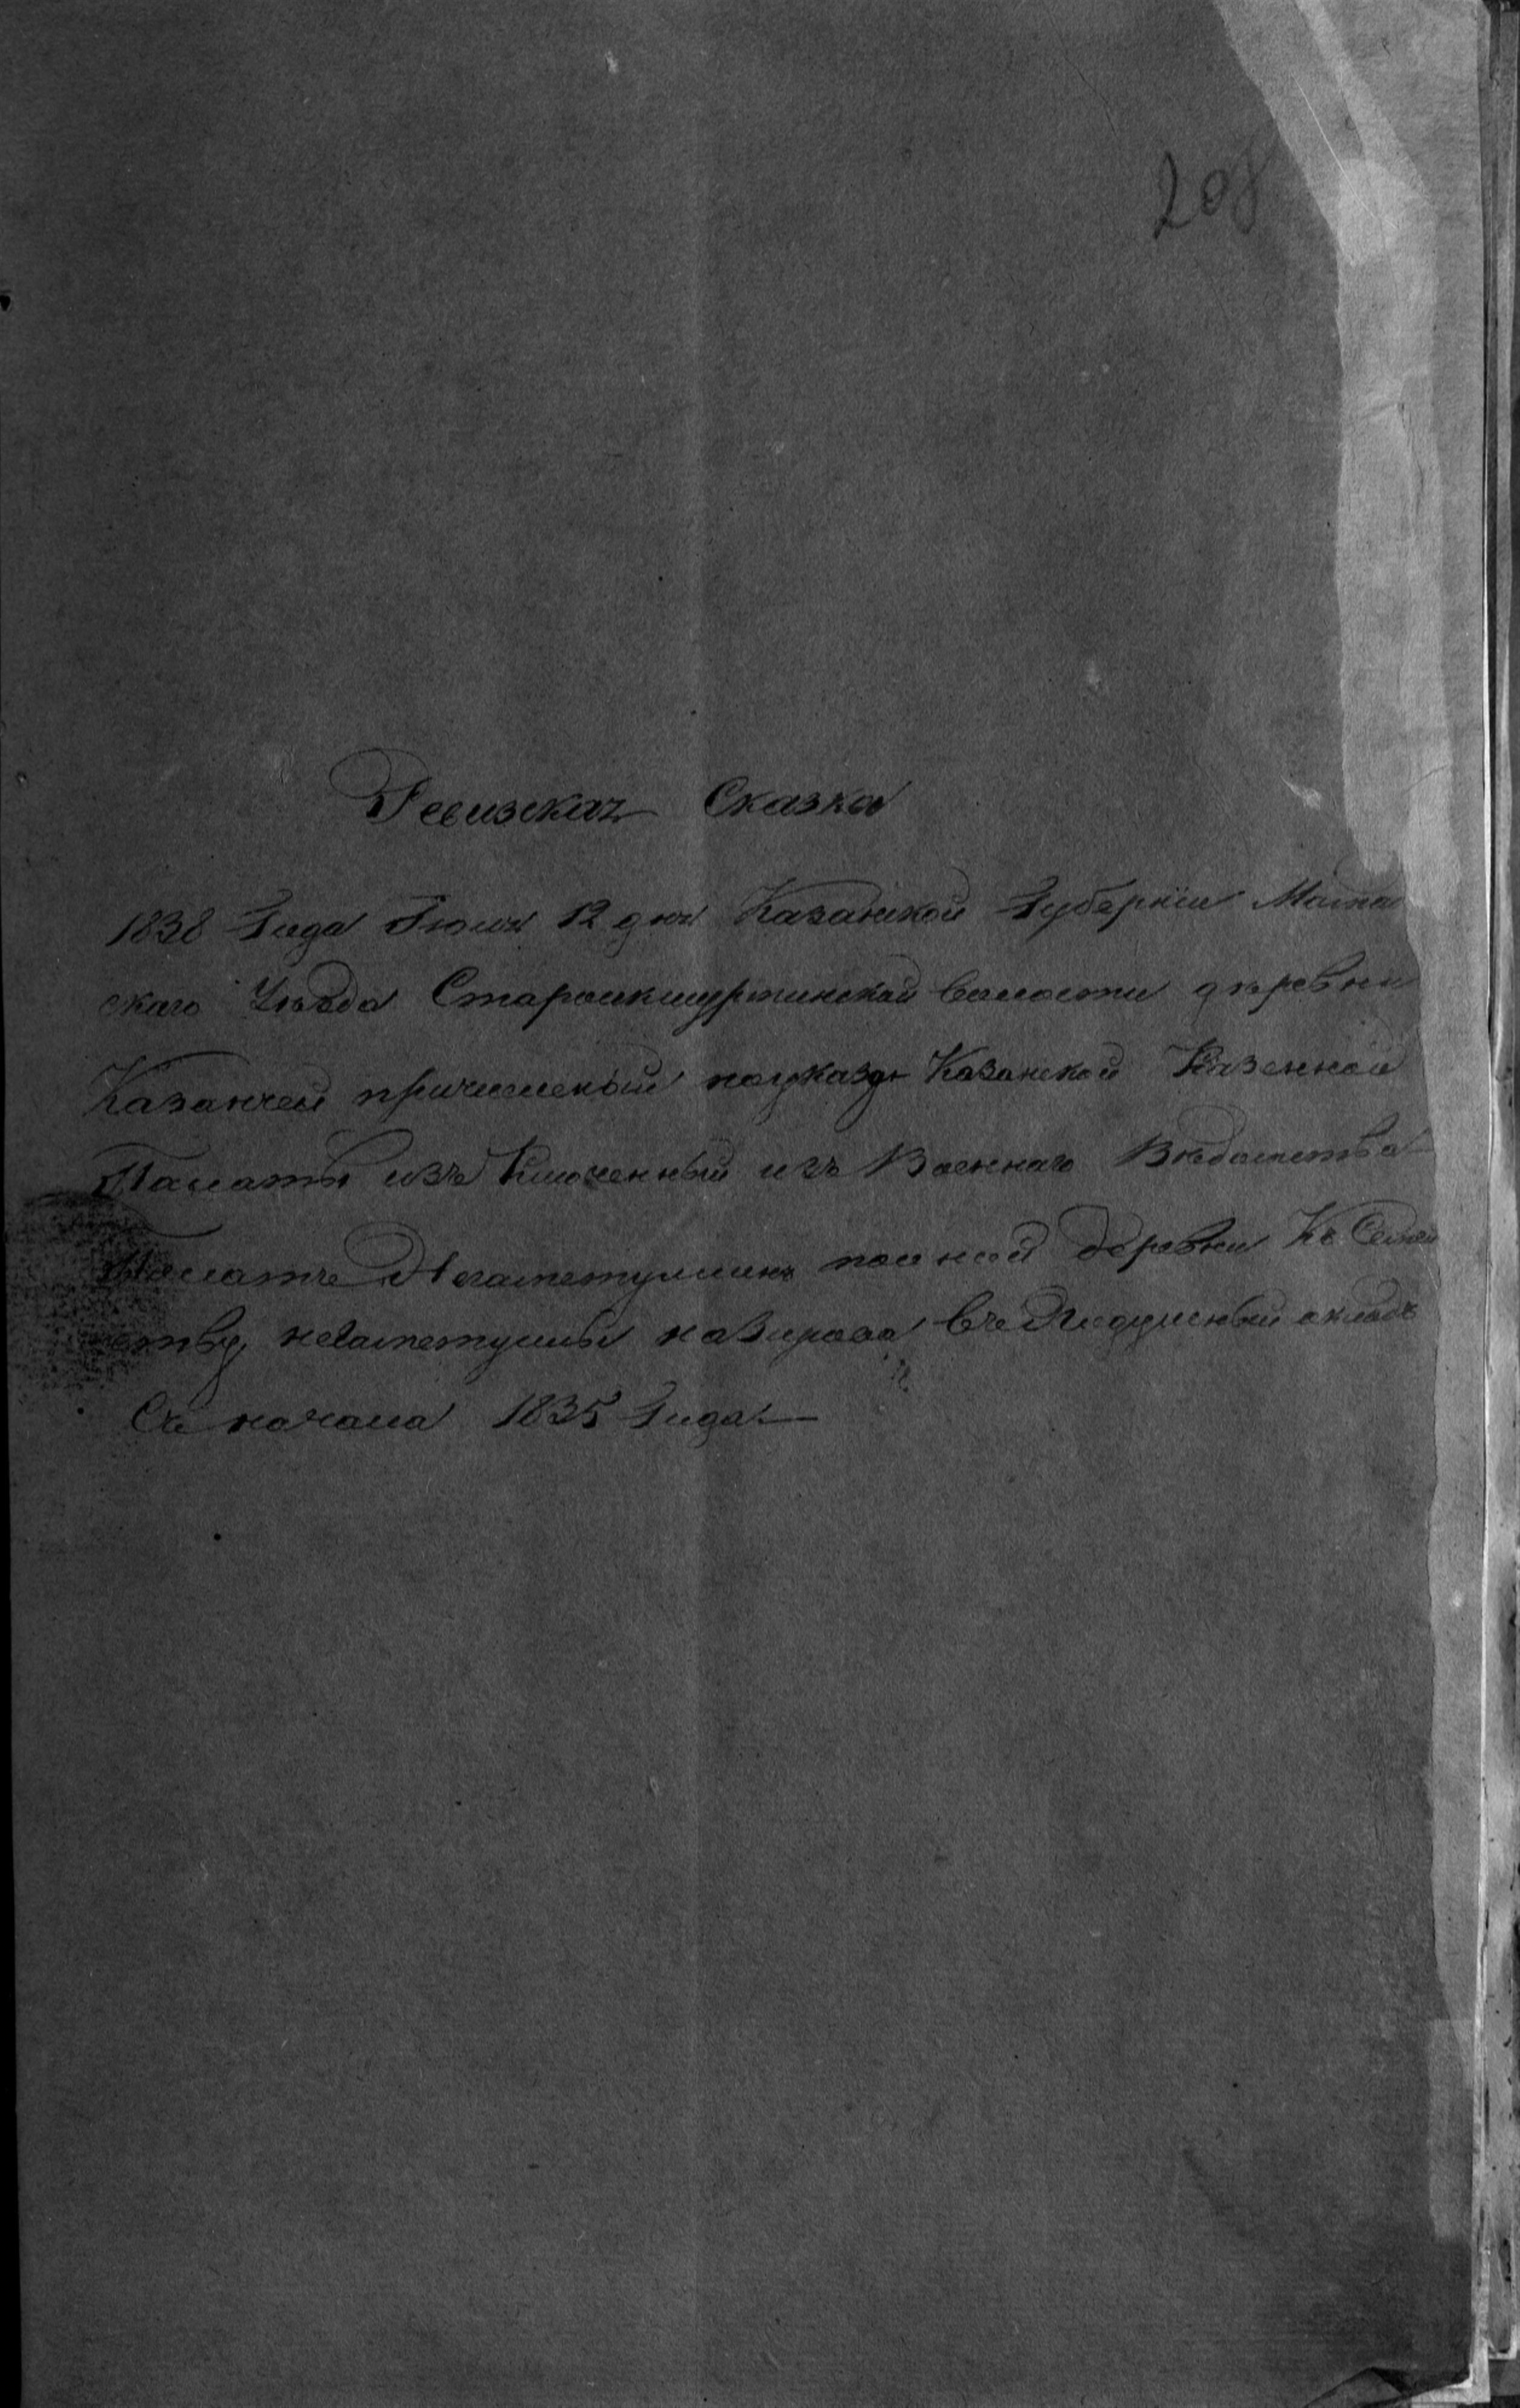 208
Ревизская Сказка
1838 Года Июля 12 дня Казанской Губерніи Мама
скаго Уезда Староикшурминской волости деревни
Казанчей причисленый поуказу Казанской Казенной
Палаты изъ Ключенный изъ Военнаго Вѣдомства
деревни Къ Семей
ству неваметуллы назирова въ Подушный окладъ
Съ начала 1835 Года